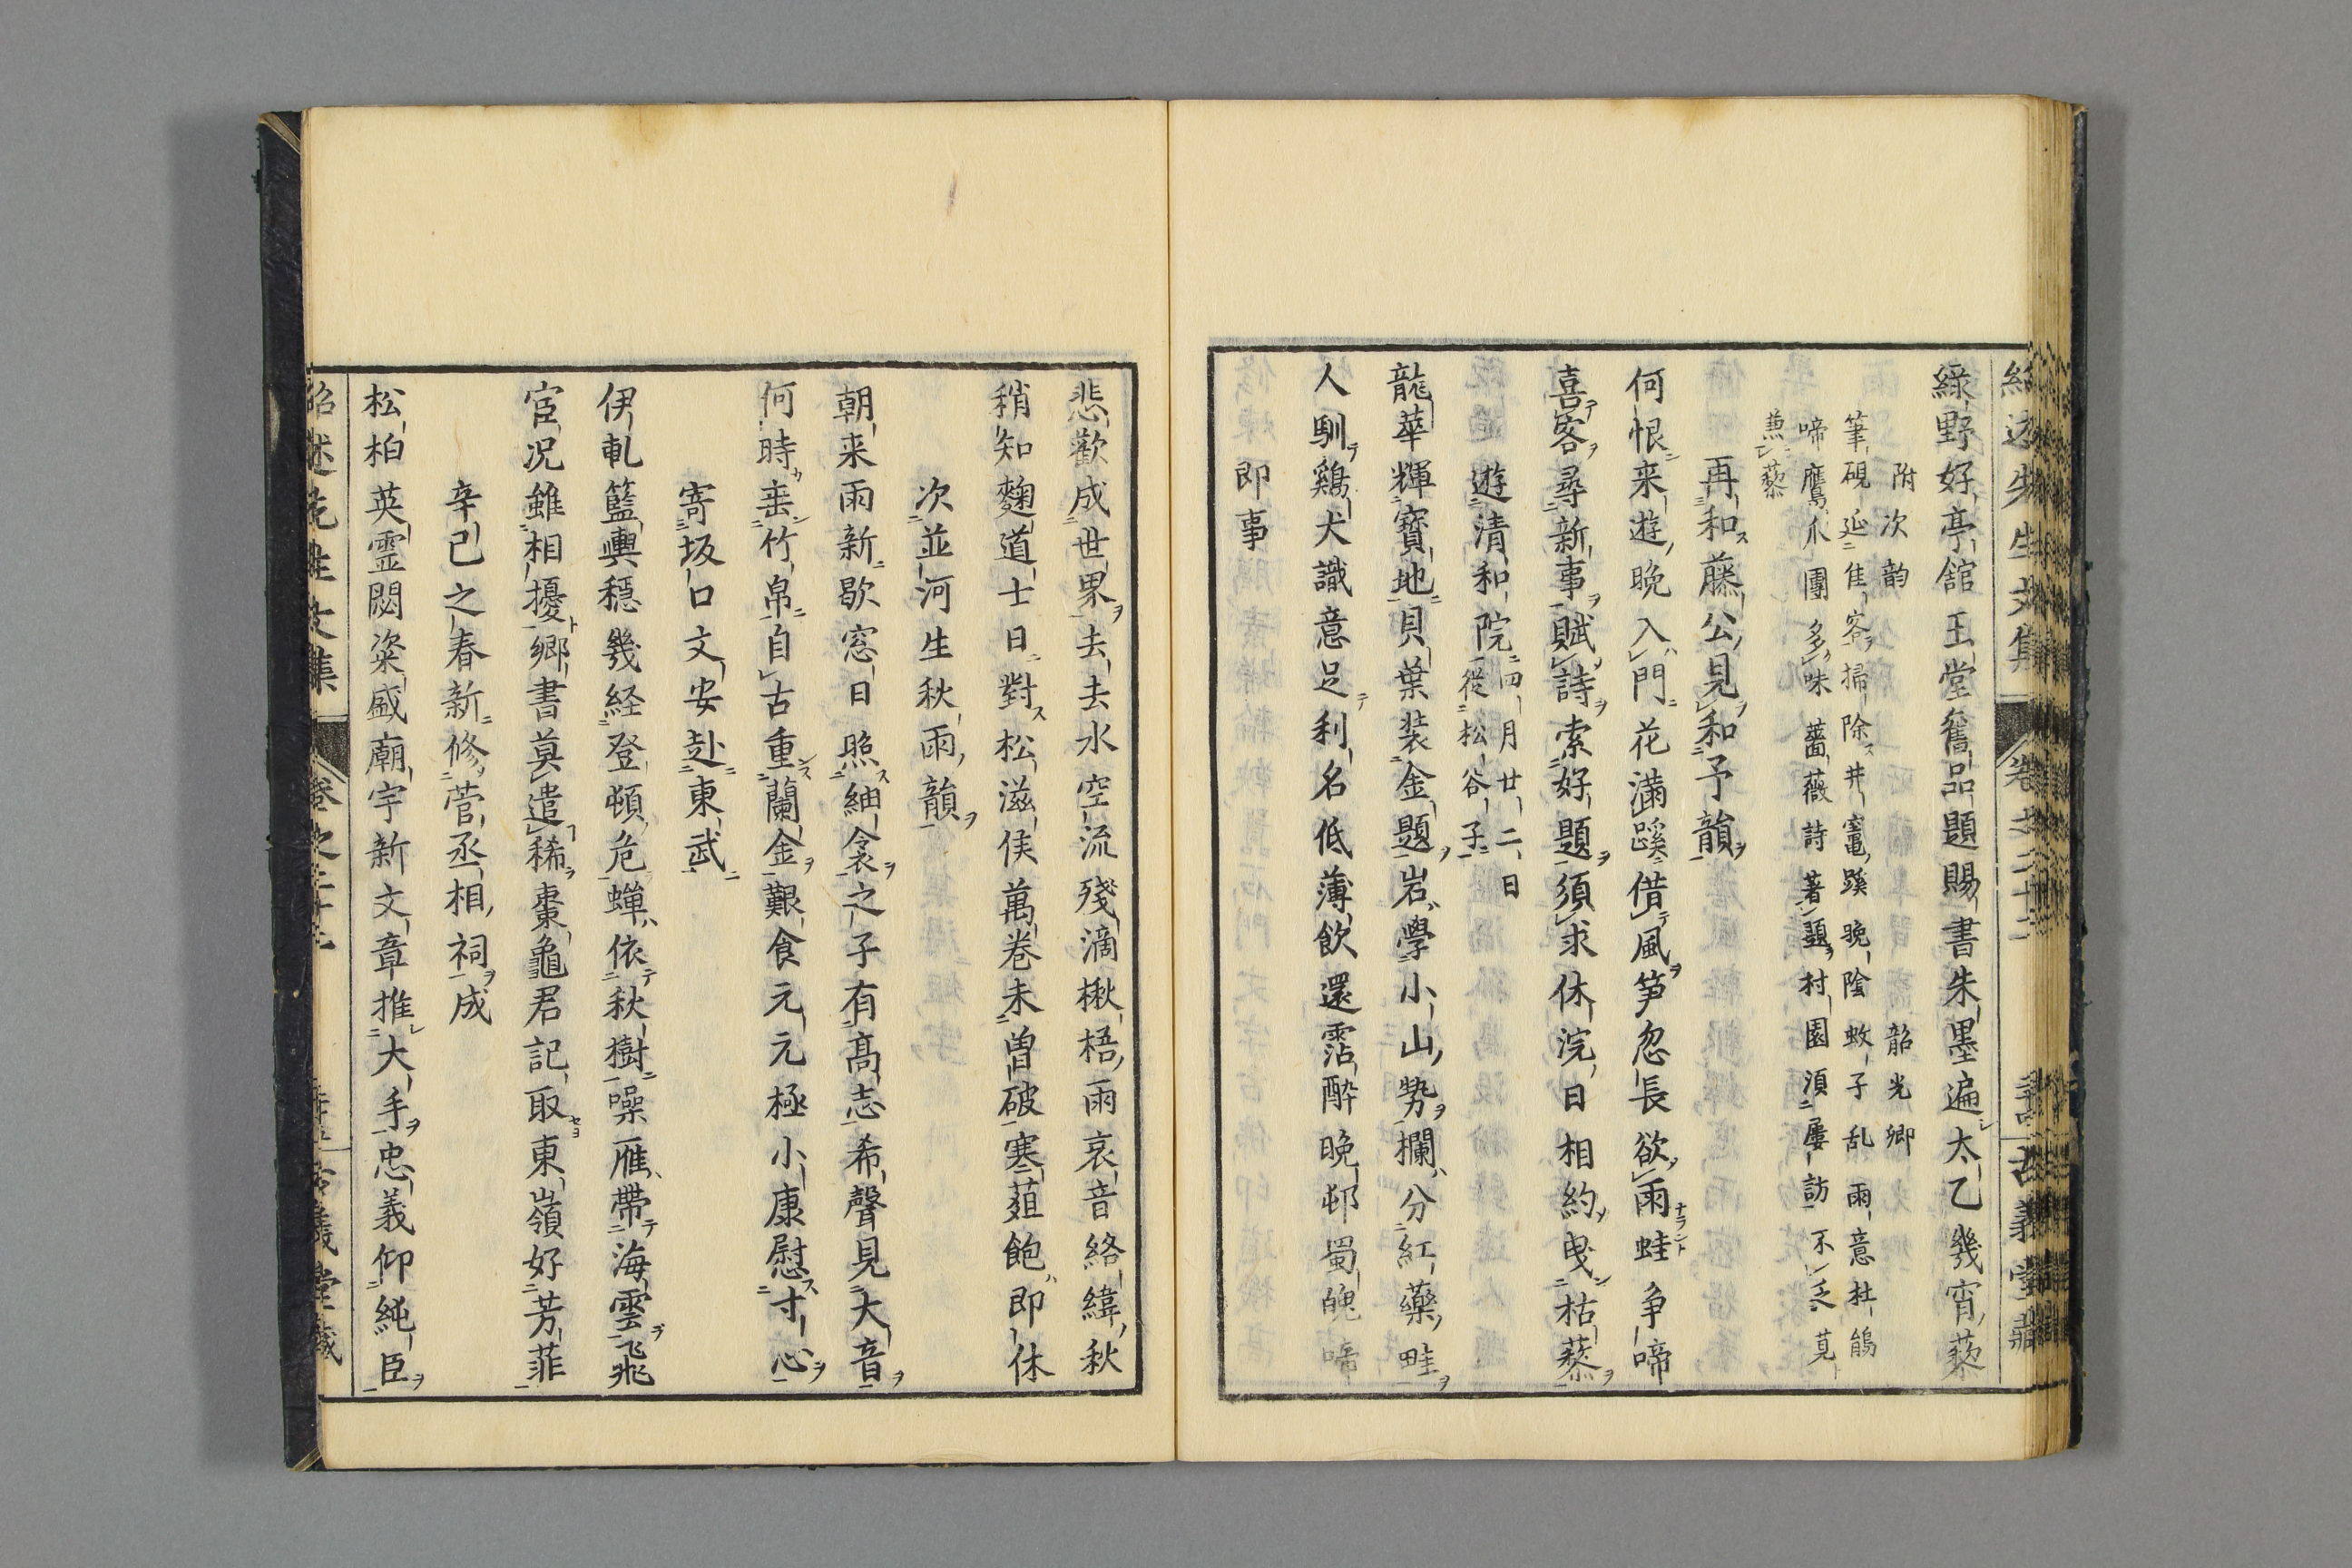 紹述先生文集 卷之二十二 古義堂藏
綠野好亭舘玉堂舊品題賜書朱墨遍太乙幾宵藜
附次韵 韶光卿
筆硯延佳客掃除井竈蹊晩陰蚊子乱雨意杜鵑
啼鷹爪團多味薔薇詩著題村園須屢訪不乏莧
兼藜
再和藤公見和予韻
何恨来遊晩入門花滿蹊借風笋忽長欲雨蛙争啼
喜客尋新事賦詩索好題須求休浣日相約曳枯藜
遊清和院四月廿二日
從松谷子
龍華輝寳地貝葉装金題岩學小山勢欄分紅藥畦
人馴鷄犬識意足利名低薄飲還霑酔晩邨蜀魄啼
即事
悲歡成世界去去水空流殘滴楸梧雨哀音絡緯秋
稍知麴道士日對松滋侯萬卷未曽破寒葅飽即休
次並河生秋雨韻
朝来雨新歇窓日照紬衾之子有髙志希聲見大音
何時埀竹帛自古重蘭金艱食元元極小康慰寸心
寄坂口文安赴東武
伊軋籃輿穏幾経登頓危蟬依秋樹噪雁帶海雲飛
宦况雖相擾郷書莫遣稀棗龜君記取東嶺好芳菲
辛已之春新修菅丞相祠成
松柏英霊閟粢盛廟宇新文章推大手忠義仰純臣
紹述先生文集 古義堂藏